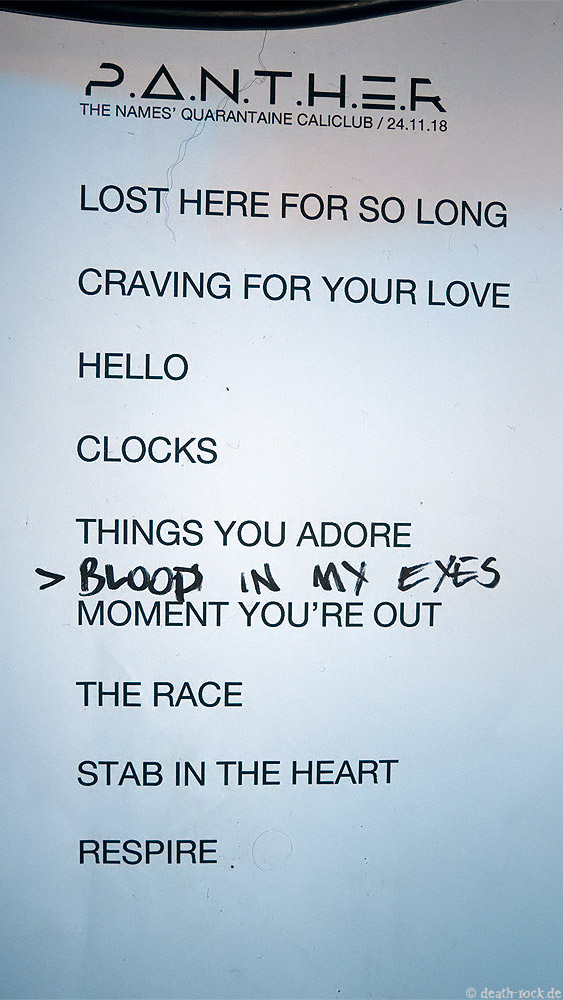 P.A.N.T.H.E.R
THE NAMES' QUARANTAINE CALICLUB / 24.11.18
LOST HERE FOR SO LONG
CRAVING FOR YOUR LOVE
HELLO
CLOCKS
THINGS YOU ADORE
> BLOOD IN MY EYES
MOMENT YOU'RE OUT
THE RACE
STAB IN THE HEART
RESPIRE
© death-rock.de